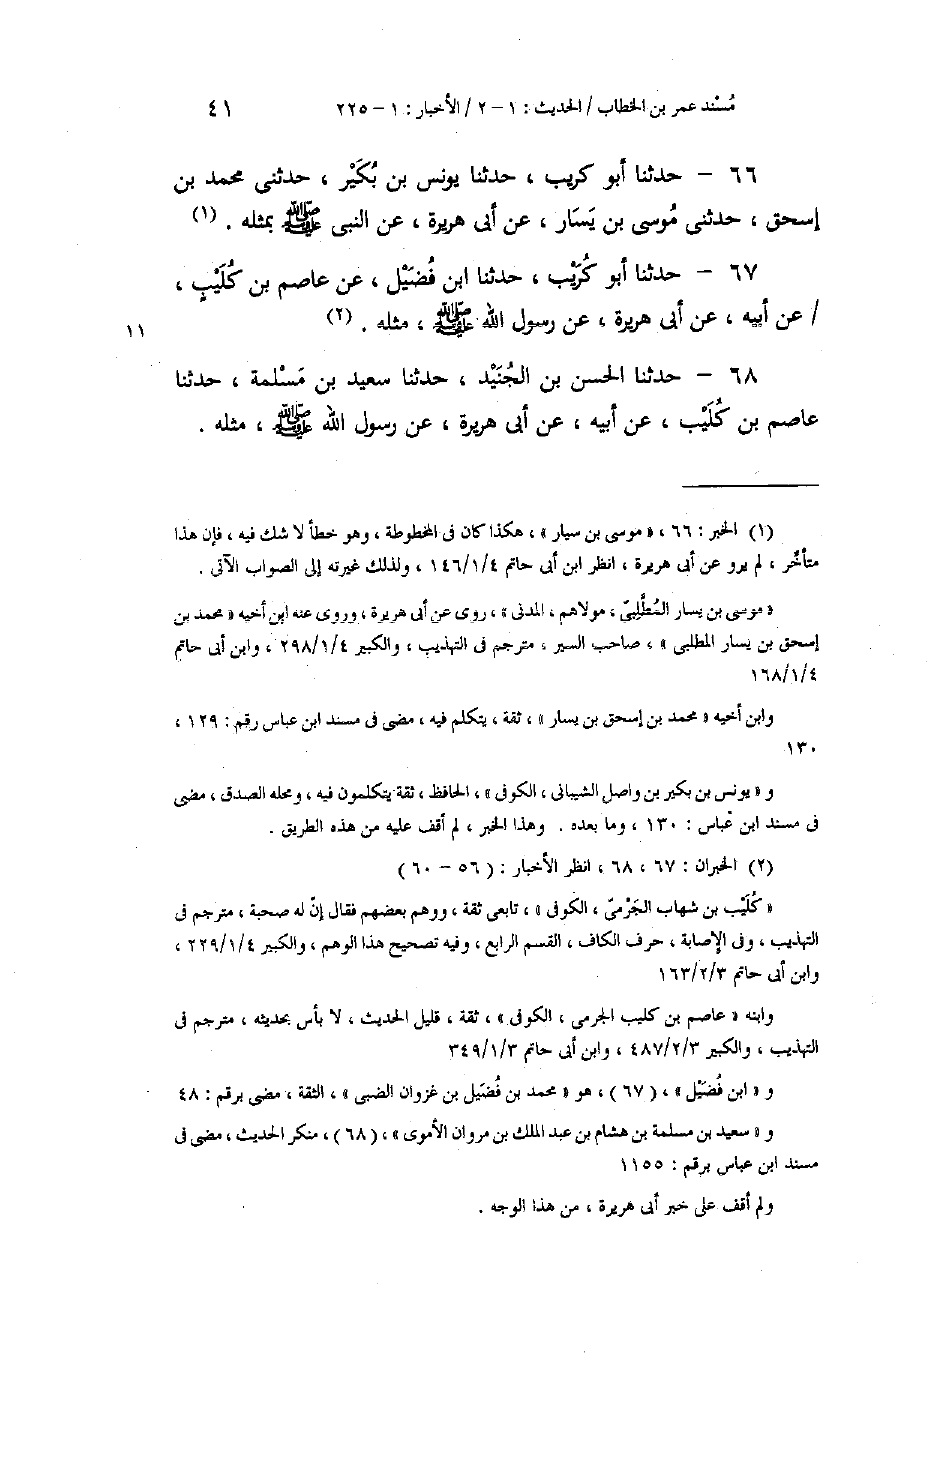 مُسْند عمر بن الخطاب / الحديث : ١ – ٢ / الأخبار : ١ – ٢٢٥ ٤١
٦٦ – حدثنا أبو كريب ، حدثنا يونس بن بُكَيْر ، حدثنى محمد بن
إسحق ، حدثنى مُوسى بن يَسَار ، عن أبى هريرة ، عن النبى ﷺ بمثله . (١)
٦٧ – حدثنا أبو كُرَيْب ، حدثنا ابن فُضَيْل ، عن عاصم بن كُلَيْبٍ ،
/ عن أبيه ، عن أبى هريرة ، عن رسول الله ﷺ ، مثله . (٢) ١١
٦٨ – حدثنا الحسن بن الجُنَيْد ، حدثنا سعيد بن مَسْلمة ، حدثنا
عاصم بن كُلَيْب ، عن أبيه ، عن أبى هريرة ، عن رسول الله ﷺ ، مثله .
(١) الخبر : ٦٦ ، « موسى بن سيار » ، هكذا كان فى المخطوطة ، وهو خطأ لا شك فيه ، فإن هذا
متأخِّر ، لم يرو عن أبى هريرة ، انظر ابن أبى حاتم ١٤٦/١/٤ ، ولذلك غيرته إلى الصواب الآتى .
« موسى بن يسار المُطَّلِبىّ ، مولاهم ، المدنى » ، روى عن أبى هريرة ، وروى عنه ابن أخيه « محمد بن
إسحق بن يسار المطلبى » ، صاحب السير ، مترجم فى التهذيب ، والكبير ٢٩٨/١/٤ ، وابن أبى حاتم
١٦٨/١/٤
وابن أخيه « محمد بن إسحق بن يسار » ، ثقة ، يتكلم فيه ، مضى فى مسند ابن عباس رقم : ١٢٩ ،
١٣٠
و « يونس بن بكير بن واصل الشيبانى ، الكوفى » ، الحافظ ، ثقة يتكلمون فيه ، ومحله الصدق ، مضى
فى مسند ابن عباس : ١٣٠ ، وما بعده . وهذا الخبر ، لم أقف عليه من هذه الطريق .
(٢) الخبران : ٦٧ ، ٦٨ ، انظر الأخبار : ( ٥٦ – ٦٠ )
« كُلَيْب بن شهاب الجَرْمىّ ، الكوفى » ، تابعى ثقة ، ووهم بعضهم فقال إنّ له صحبة ، مترجم فى
التهذيب ، وفى الإصابة ، حرف الكاف ، القسم الرابع ، وفيه تصحيح هذا الوهم ، والكبير ٢٢٩/١/٤ ،
وابن أبى حاتم ١٦٣/٢/٣
وابنه « عاصم بن كليب الجرمى ، الكوفى » ، ثقة ، قليل الحديث ، لا بأس بحديثه ، مترجم فى
التهذيب ، والكبير ٤٨٧/٢/٣ ، وابن أبى حاتم ٣٤٩/١/٣
و « ابن فُضَيْل » ، ( ٦٧ ) ، هو « محمد بن فُضَيْل بن غزوان الضبى » ، الثقة ، مضى برقم : ٤٨
و « سعيد بن مسلمة بن هشام بن عبد الملك بن مروان الأموى » ، ( ٦٨ ) ، منكر الحديث ، مضى فى
مسند ابن عباس برقم : ١١٥٥
ولم أقف على خبر أبى هريرة ، من هذا الوجه .